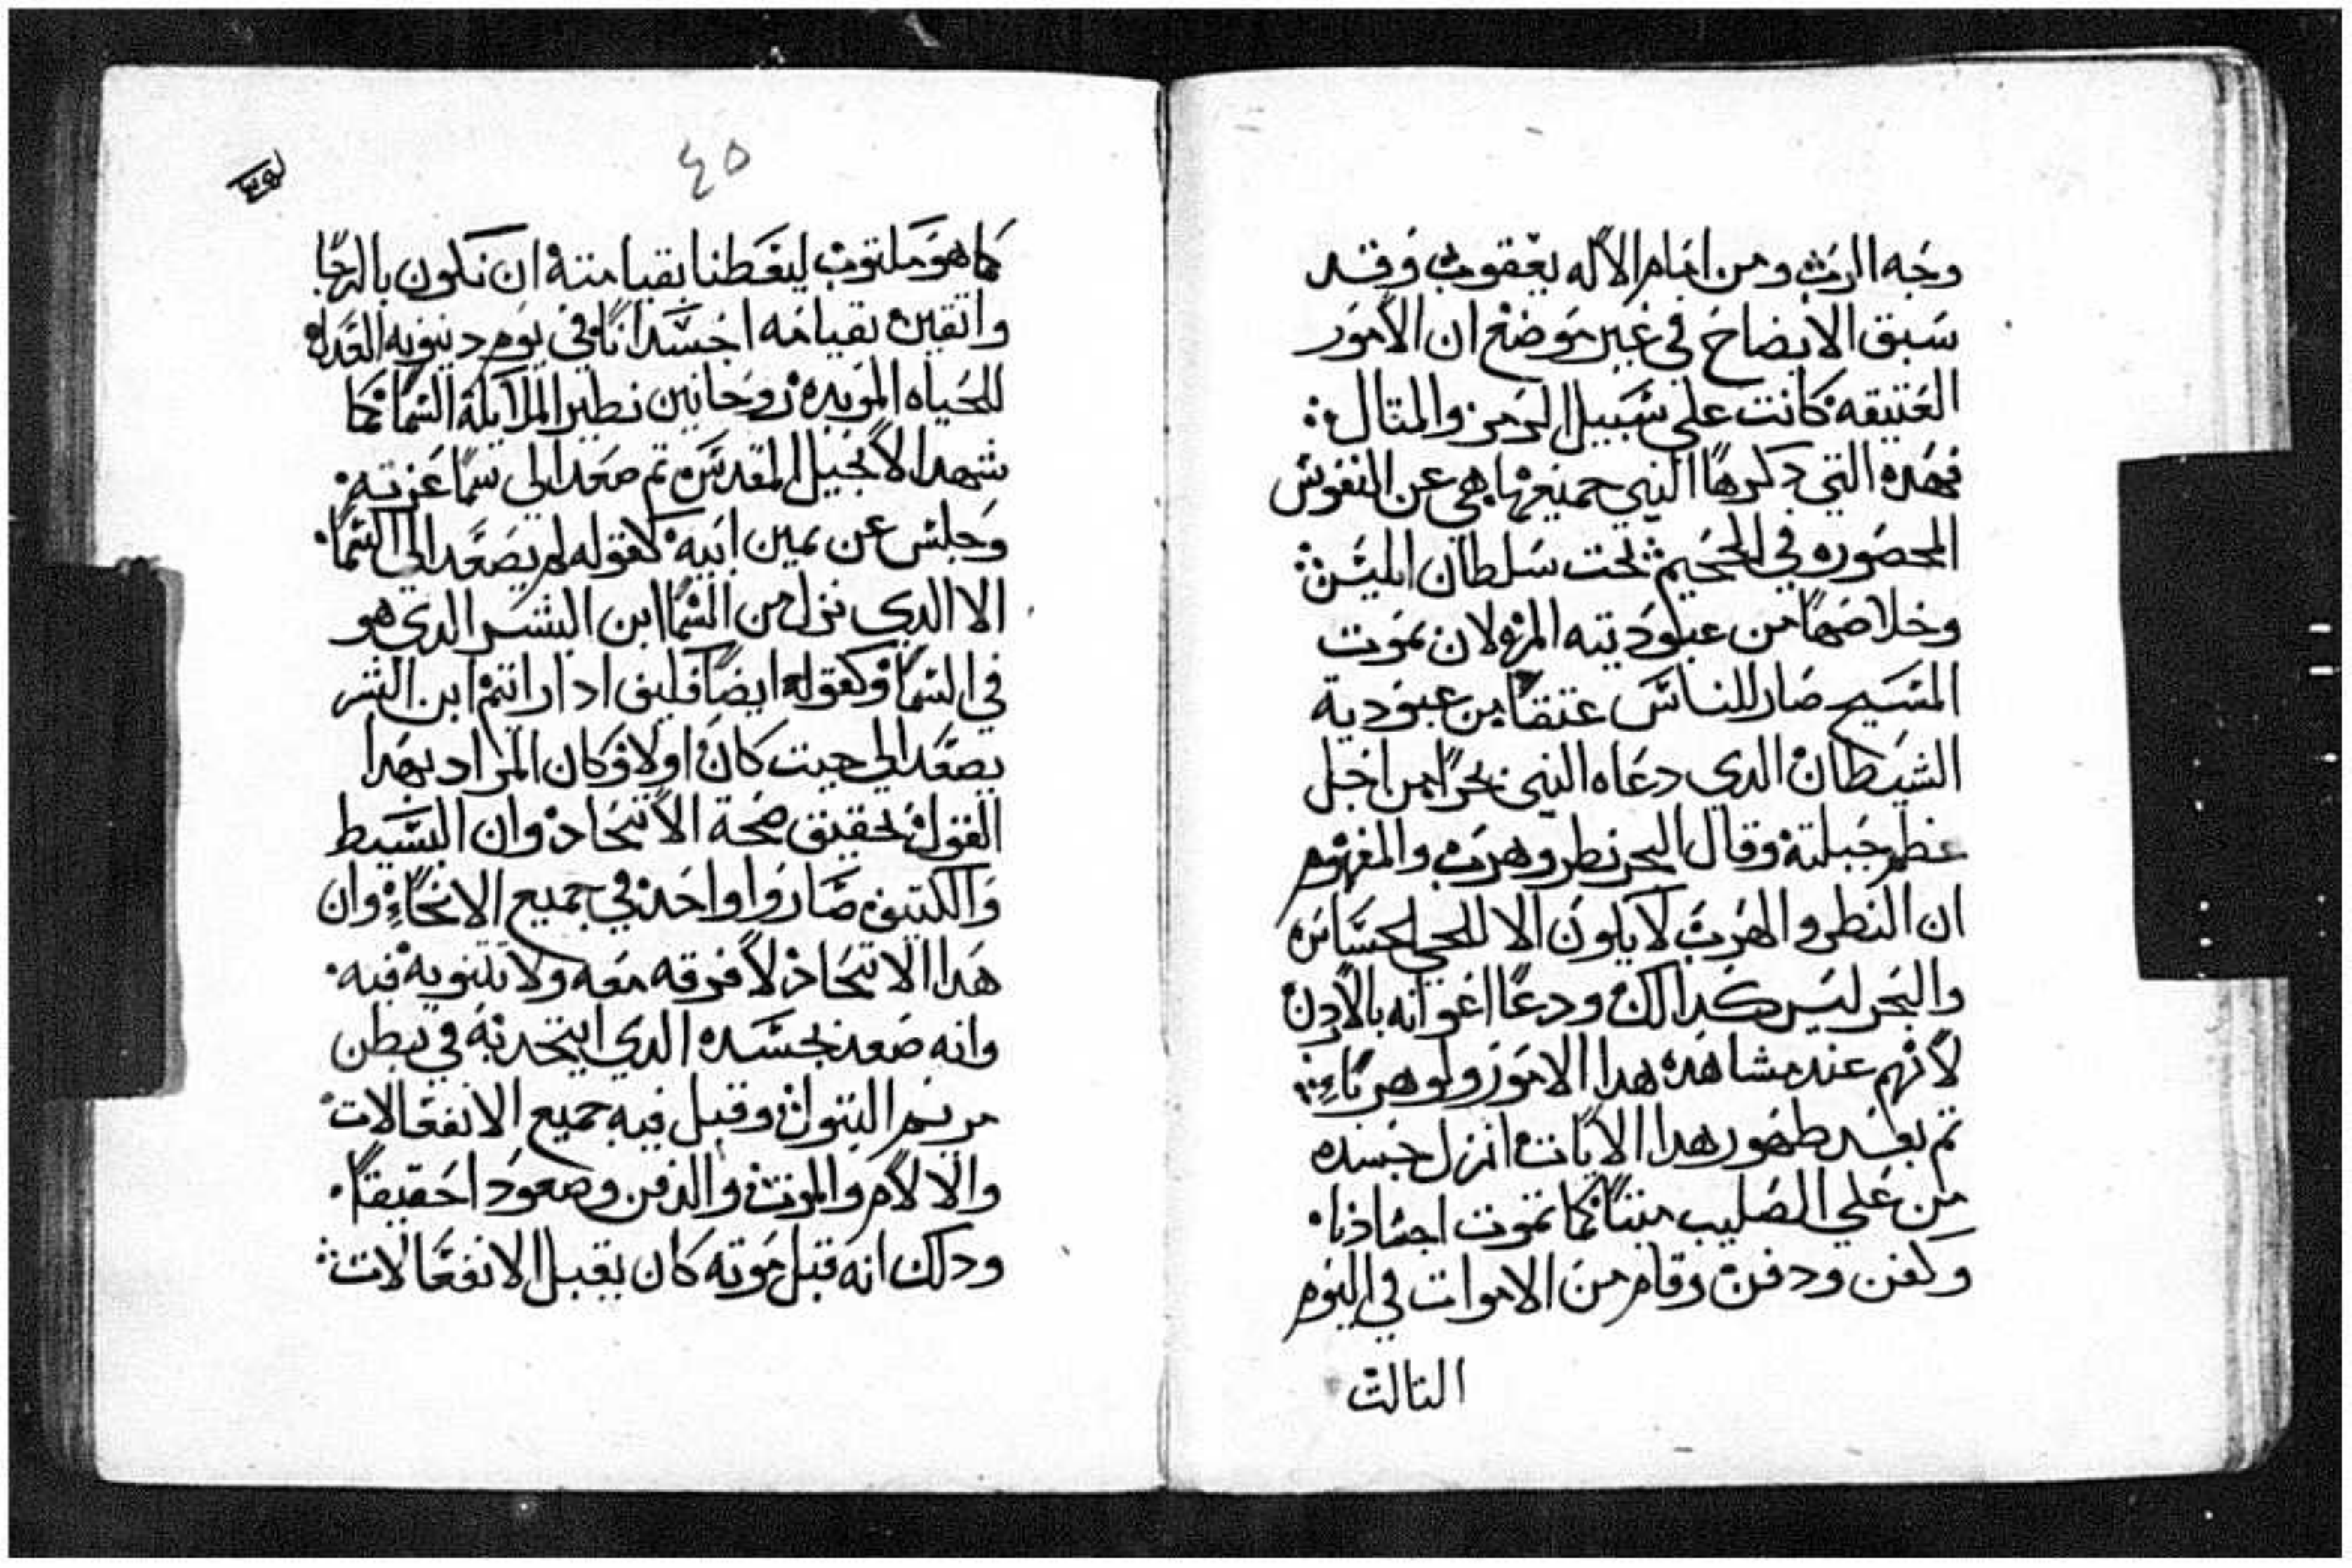 وجه الرب ومن امام الاله يعقوب وقد
سبق الايضاح في غير موضع ان الامور
العتيقه كانت علي سبيل الرمز والمتال
فهده التي دكرها النبي جميعها هي عن النفوس
المحصوره في الجحيم تحت سلطان ابليس
وخلاصها من عبوديته المره لان بموت
المسيح صار للناس عتقا من عبودية
الشيطان الدي دعاه النبي بحرا من اجل
عظم جبلته وقال البحر نطر وهرب والمفهوم
ان النطر والهرب لا يكون الا للحي الحساس
والبحر ليس كدالك ودعا اعوانه بالاردن
لانهم عند مشاهده هدا الامور ولو هربا
تم بعد طهور هدا الايات انزل جسده
من علي الصليب ميتا كما تموت اجسادنا
وكفن ودفن وقام من الاموات في اليوم
التالت
٤٥
كما هو مكتوب ليعطنا بقيامته ان نكون بالرجا
واتقين بقيامه اجسدانا في يوم دينونه العداله
للحياه الموبده روحانين نطير الملايكة السما كما
شهد الانجيل المقدس تم صعد الي سما عزته
وجلس عن يمين ابيه كقوله لم يصعد الي السما
الا الدي نزل من السما ابن البشر الدي هو
في السما وكقوله ايضا فكيف ادا راتيم ابن البشر
يصعد الي حيت كان اولا وكان المراد بهدا
القول تحقيق صحة الاتحاد وان البسيط
والكتيف صاروا واحد في جميع الانحاء وان
هدا الاتحاد لا فرقه معه ولا تتنويه فيه
وانه صعد بجسده الدي اتحد به في بطن
مريم البتول وقبل فيه جميع الانفعالات
والالام والموت والدفن وصعودا حقيقتا
ودلك انه قبل موته كان يقبل الانفعالات